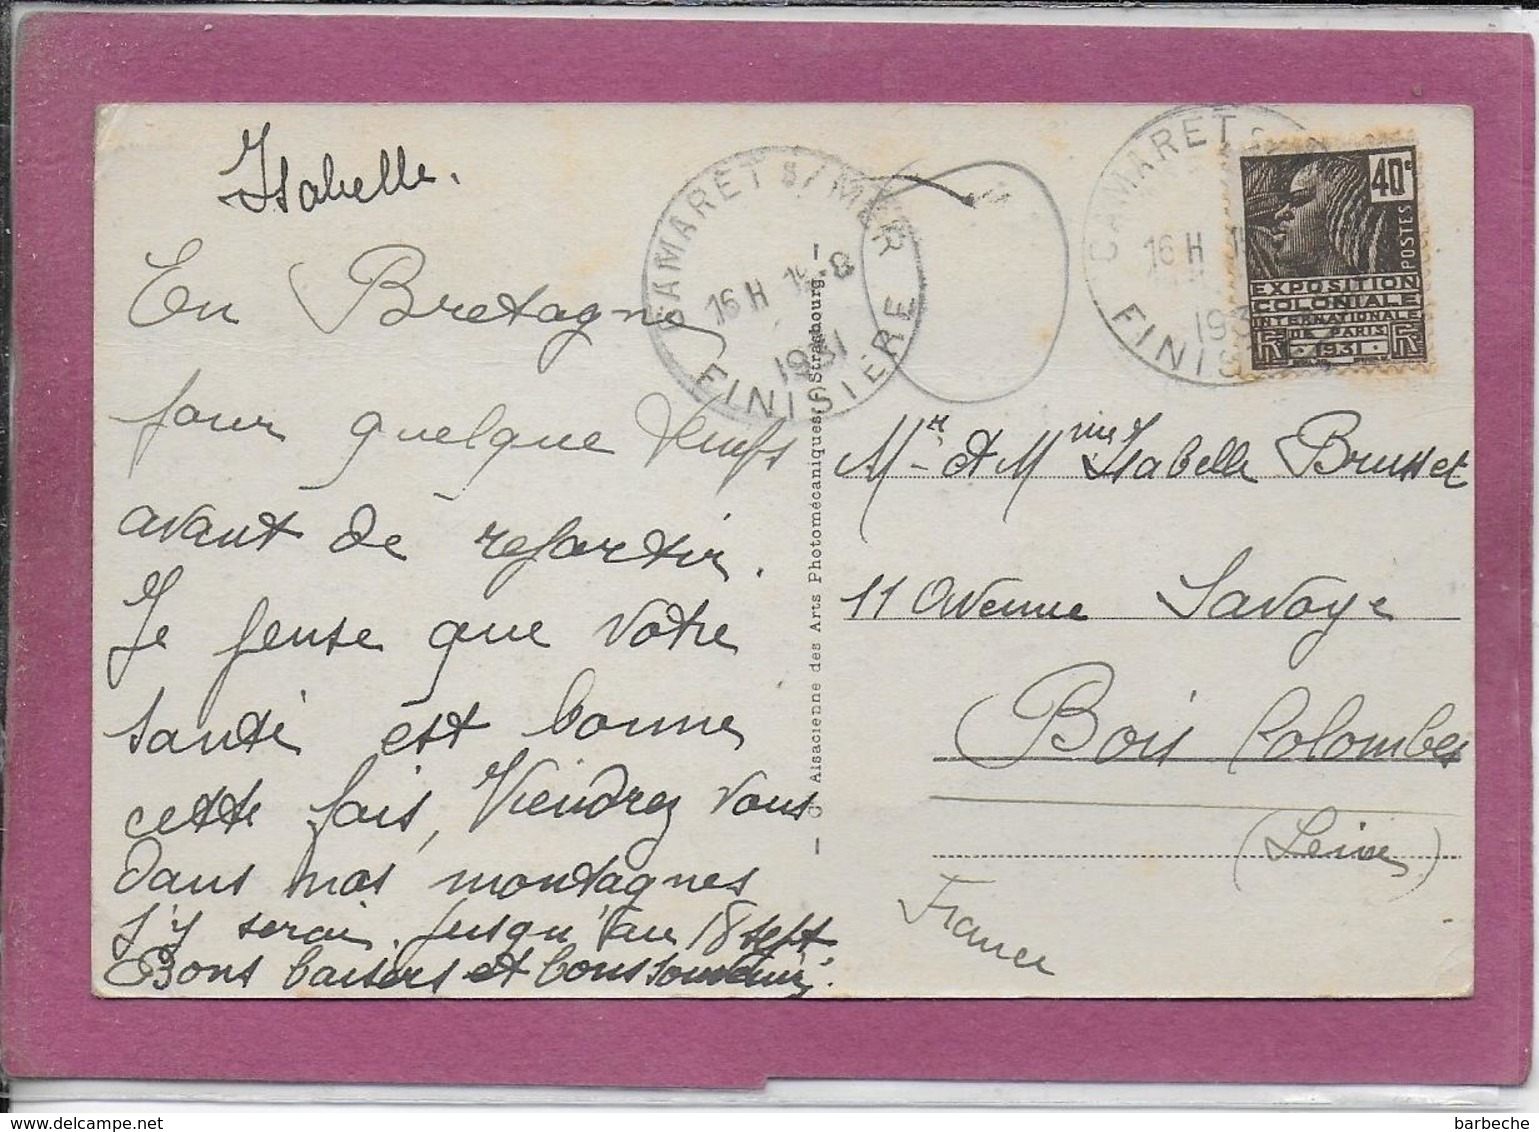 Isabelle.
En Bretagne
pour quelque temps
avant de repartir.
Je pense que votre
santé est bonne
cette fois, Viendrez vous
dans nos montagnes
j'y serai jusqu'au 18 sept
Bons baisers et bons souvenirs.
CAMARET S/ MER
16 H 1 -8
1931
FINISTERE
— Cie Alsacienne des Arts Photomécaniques, Strasbourg. —
CAMARET S
16 H 1
193
FINIS
40c
POSTES
EXPOSITION
COLONIALE
INTERNATIONALE
DE PARIS
RF · 1931 · RF
Mr et Mme Isabelle Brusset
11 Avenue Savoye
Bois Colombes
(Seine)
France
barbeche